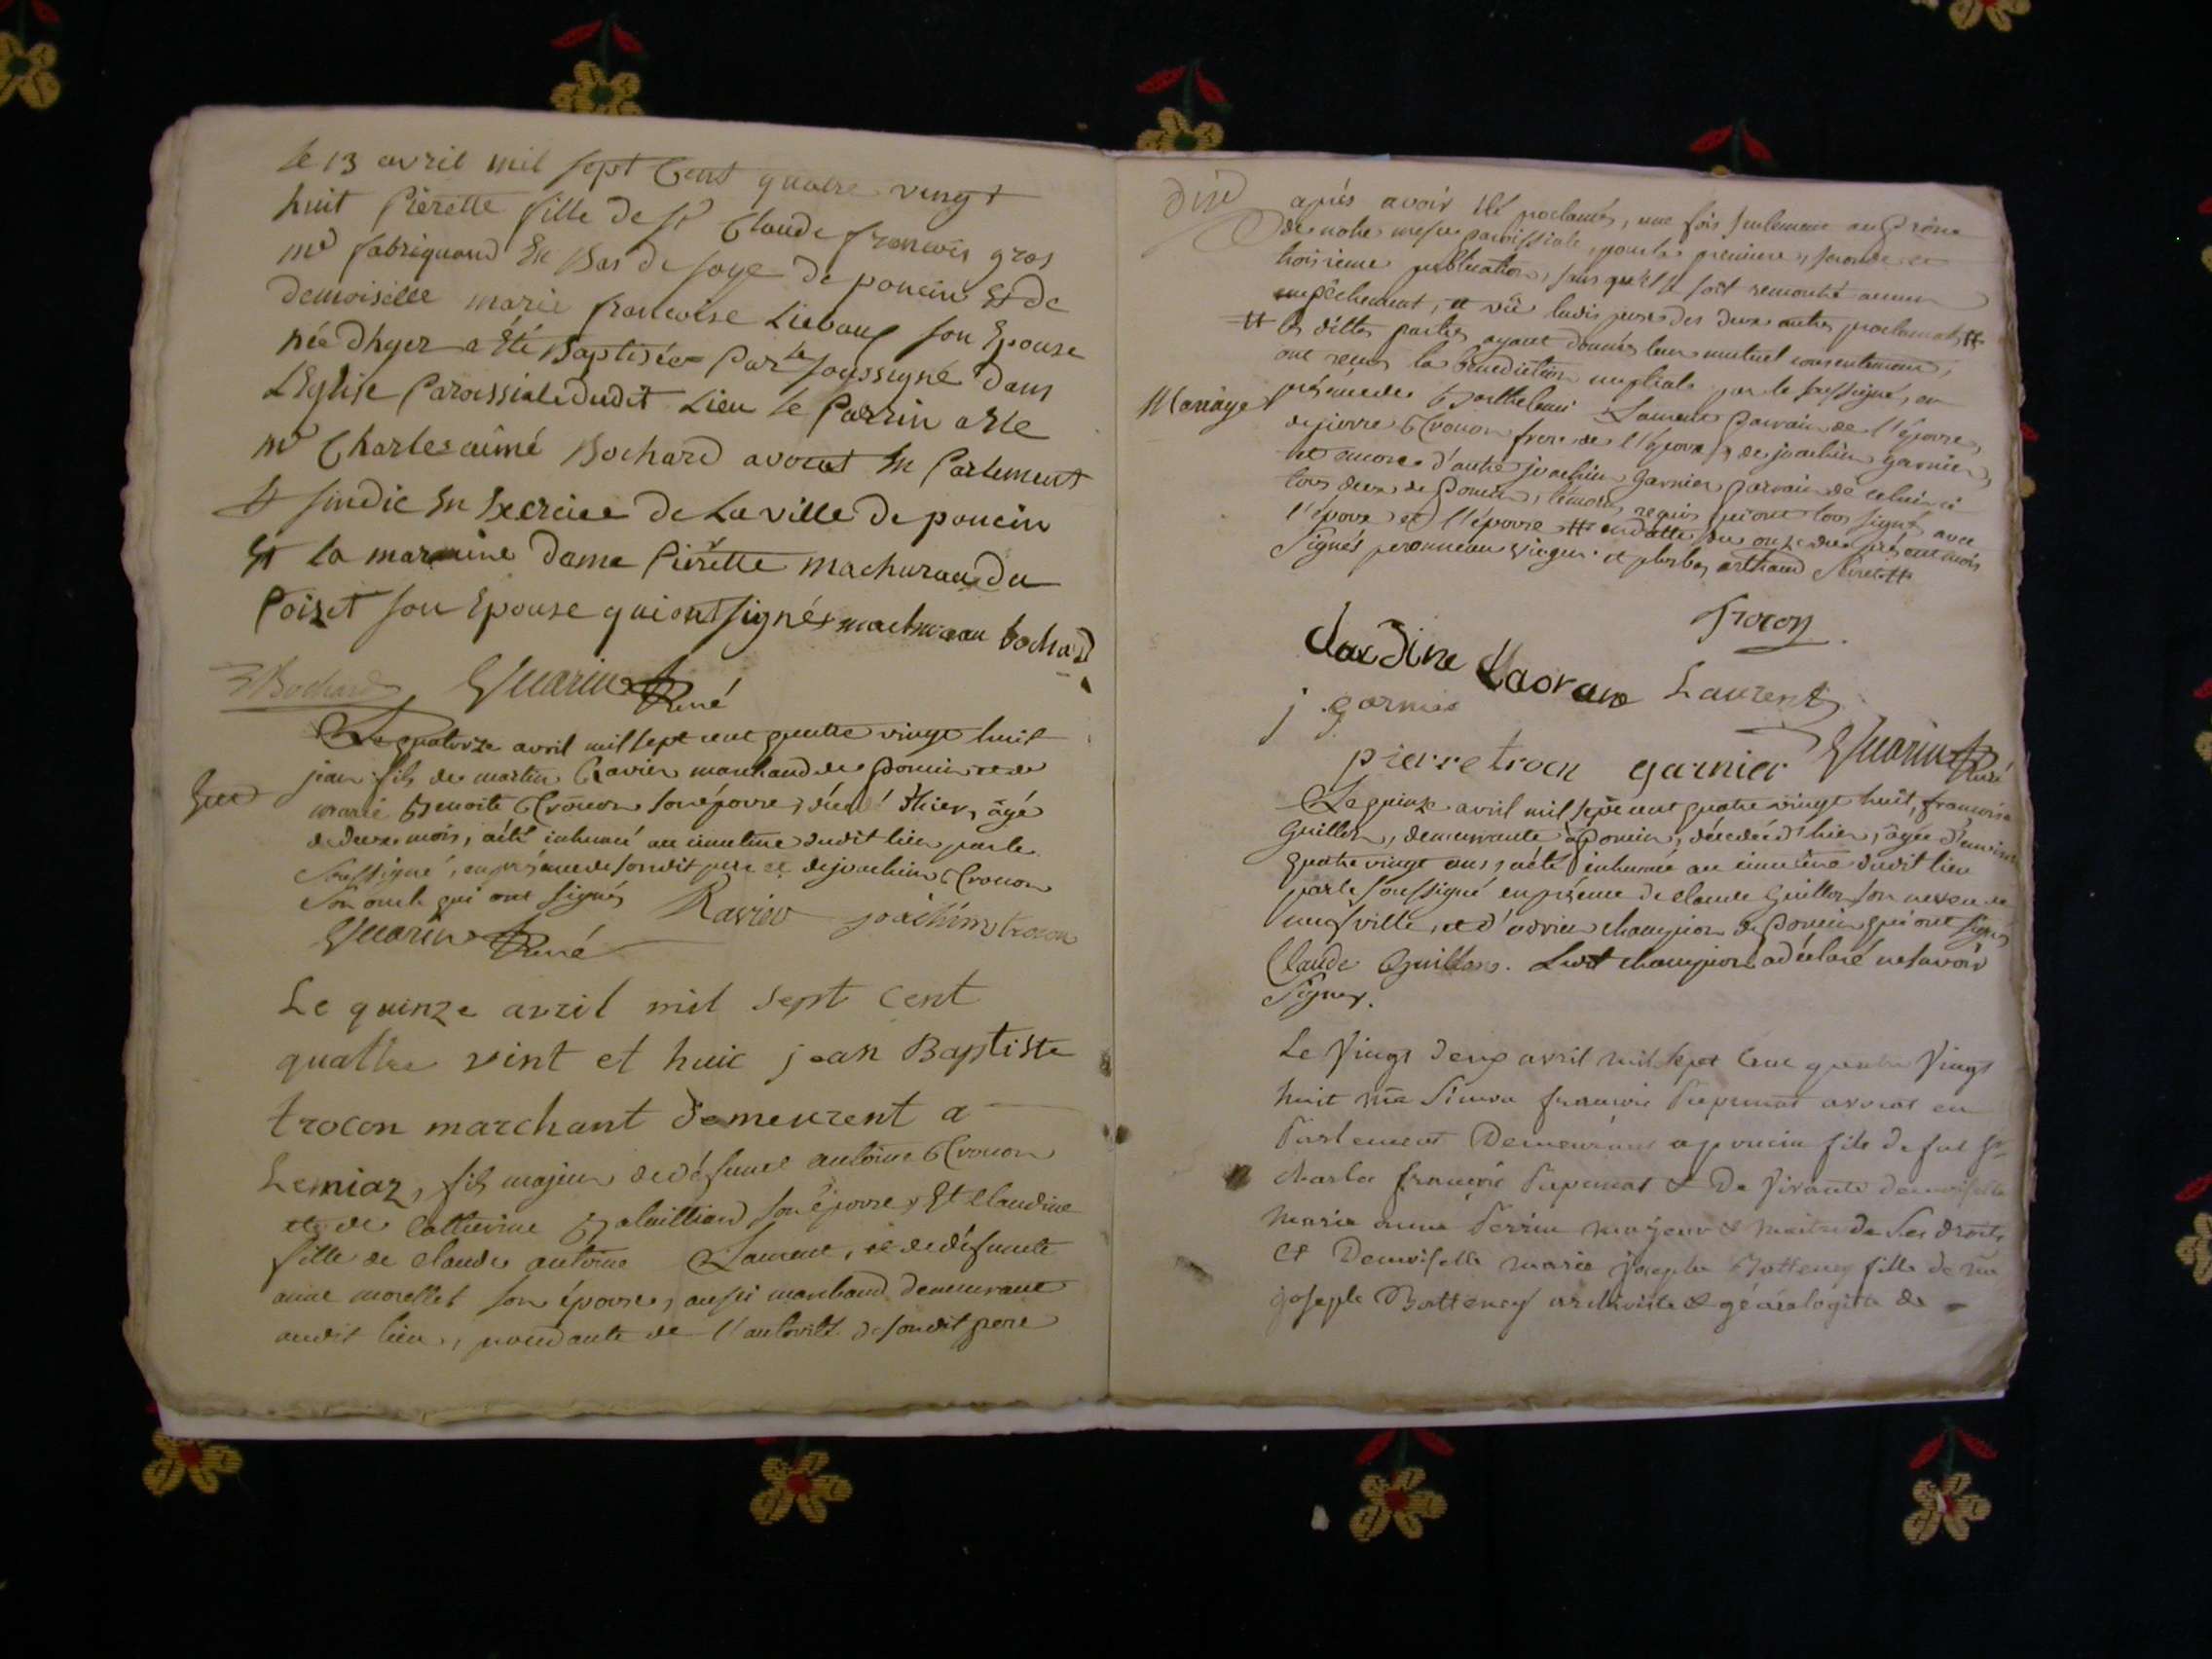 Le 13 avril mil sept Cent quatre vingt
huit Piérette fille de sr Claude francois gros
md fabriquand En Bas de soye de poncin Et de
demoiselle marie francoise Liebaux son Epouse
née dhyer a Eté Baptisée Par le soussigné dans
LEglise Paroissiale dudit Lieu le Parrin a été
mr Charles aimé Bochard avocat En Parlement
& sindic En Exercice De La ville De poncin
Et la marraine dame Piérette machurau du
Poizet son Epouse qui ont signés machurau bochard
Bochard Guarin Curé
Le quatorze avril mil sept cent quatre vingt huit
jean fils de martin Ravier marchand de Poncin et de
marie Benoite Trocon son épouse, décédé d'hier, âgé
de deux mois, a été inhumé au cimetiere dudit lieu par le
Soussigné, en présence de son dit pere et de joachim Trocon
Son oncle qui ont signés
Ravier joachim trocon
Guarin Curé
Le quinze avril mil sept cent
quattre vint et huic jean Baptiste
trocon marchant demeurent a
Leniaz, fils majeur de défunct antoine Trocon
et de Catherine son épouse, Et Claudine
fille de claude antoine Laurent, et de défunte
anne morellet son épouse, aussi marchand demeurant
audit lieu, procedante de l'autorité de son dit pere
Disp
après avoir été proclamés, une fois seulement au Prône
de notre messe paroissiale, pour la premiere, seconde et
troisieme publication, sans qu'il se soit remontré aucun
empêchement, et vû la dispense des deux autres proclamats #
# les dittes parties ayant donnés leur mutuel consentement,
ont reçus la bénédiction nuptiale par le soussigné, en
Mariage
présence de Barthelemi Laurent Parrain de l'épouse,
de pierre Trocon frere de l'époux, de joachim garnier,
et encore d'autre joachim garnier parrain de celui ci
tous deux de Poncin, témoins requis qui ont tous signés avec
l'époux et l'épouse # en datte du onze du présent mois
Signés peronneau vicgen. et plus bas arthaud Secret. #
Trocon
claudine Laorans Laurent
j garnier
pierre trocn garnier Guarin Curé
Le quinze avril mil sept cent quatre vingt huit, françoise
Guillon, demeurante à Poncin, décédée d'hier, âgée d'environ
quatre vingt ans, a été inhumée au cimetiere dudit lieu
par le soussigné en présence de claude Guillon son neveu de
neufville, et d'adrien champion de Poncin qui ont signés
Claude Guillon. Ledit champion a déclaré ne savoir
Signer.
Le Vingt deux avril mil sept Cent quatre Vingt
huit me Simon francois avocat en
Parlement Demeurant a poncin fils de feu Sr
charles francois & De Vivante demoiselle
marie anne Perrin majeur & maitre de ses droits
Et Demoiselle marie josephe Botteney fille de me
joseph Botteney archiviste & généalogiste de